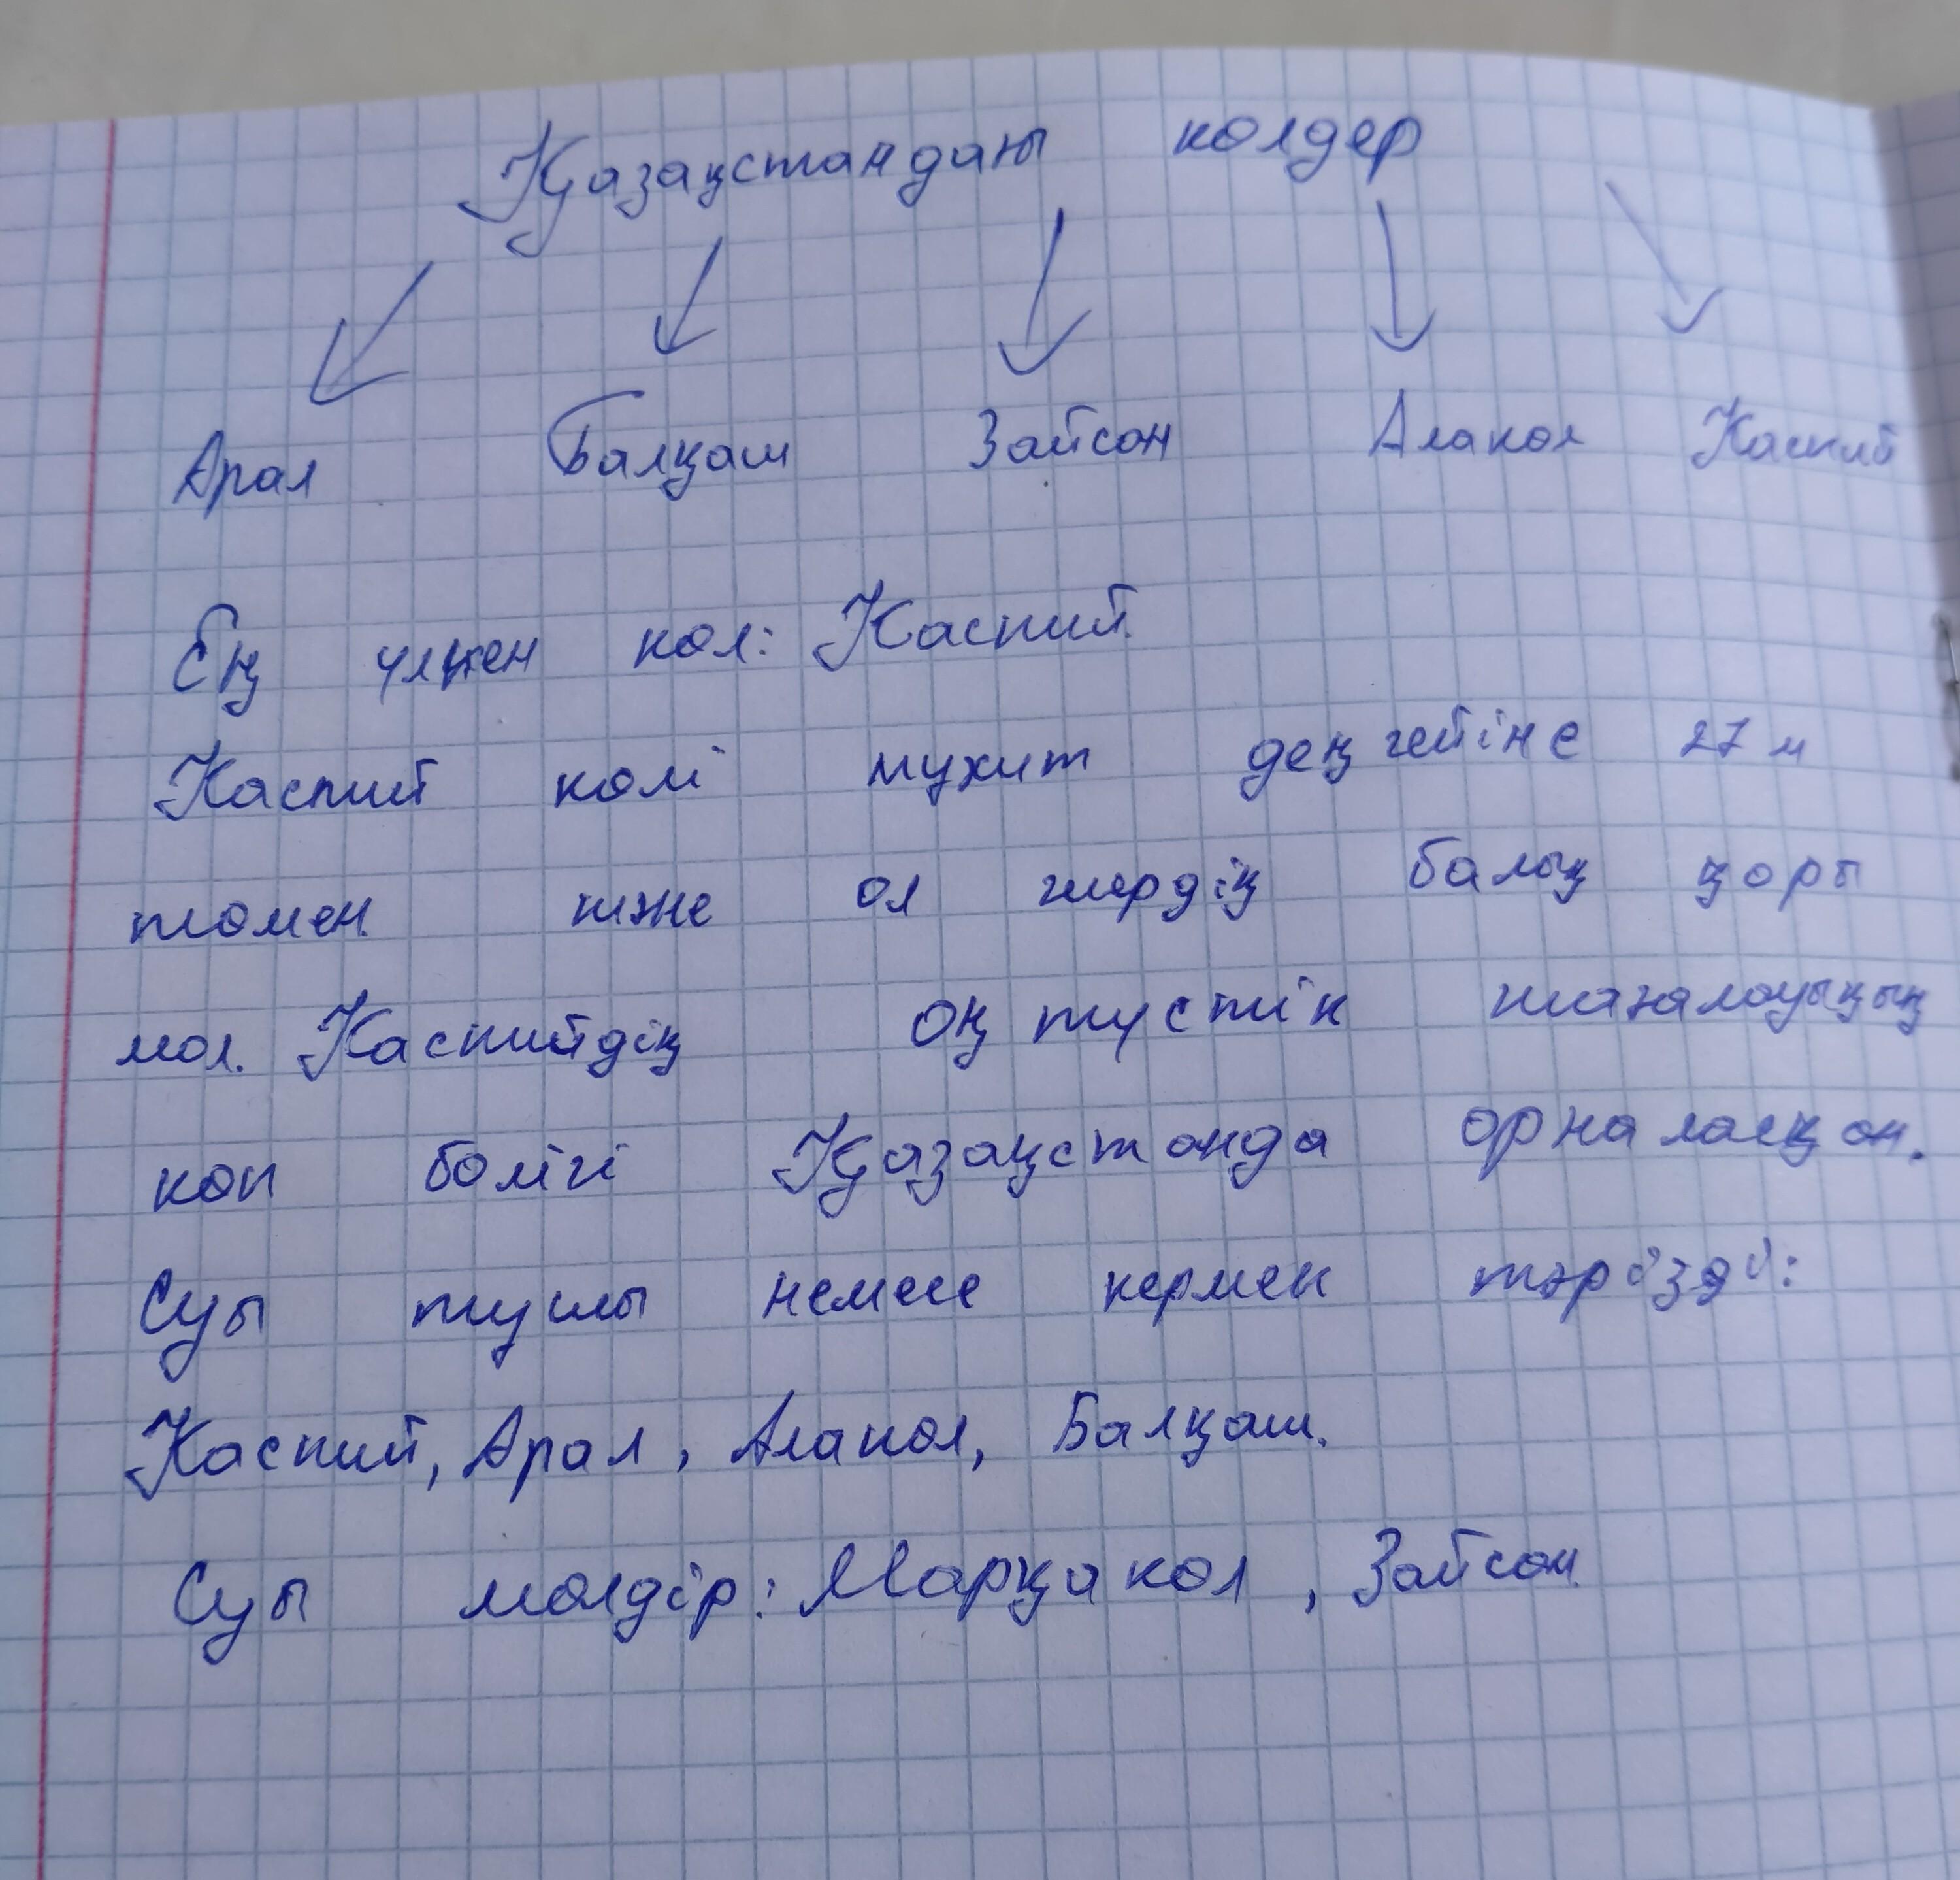 Қазақстанданы көлдер
Арал Балқаш Зайсан Алакөл Каспий
Ең үлкен көл: Каспий.
Каспий көлі мұхит деңгейіне 27 м
төмен. және ол жердің балық қоры
мол. Каспийдің оңтүстік
көп бөлігі Қазақстанда орналасқан.
Суы тұщы немесе кермек тәрізді:
Каспий, Арал, Алакөл, Балқаш.
Суы мөлдір: Марқакөл, Зайсан.